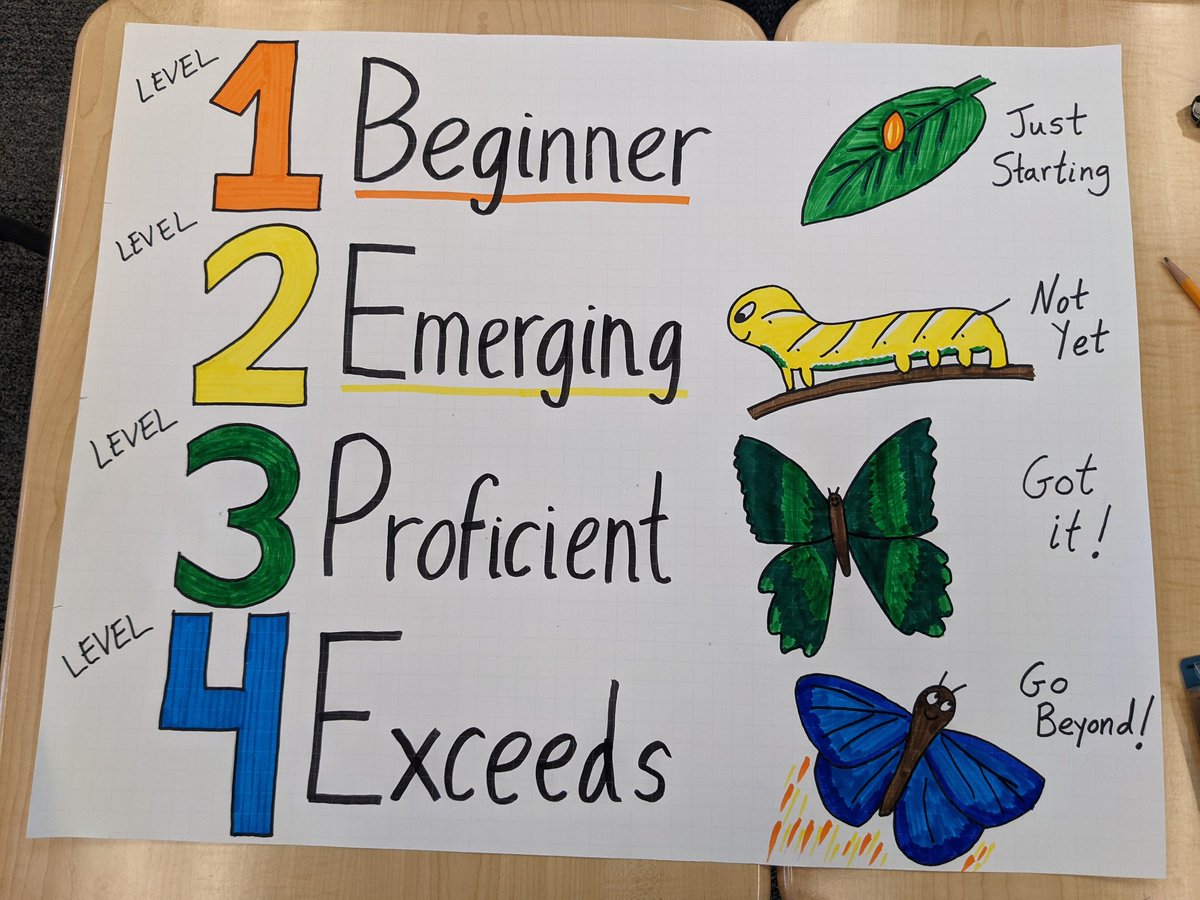 LEVEL 1 Beginner
Just
Starting
LEVEL 2 Emerging
Not
Yet
LEVEL 3 Proficient
Got
it!
LEVEL 4 Exceeds
Go
Beyond!